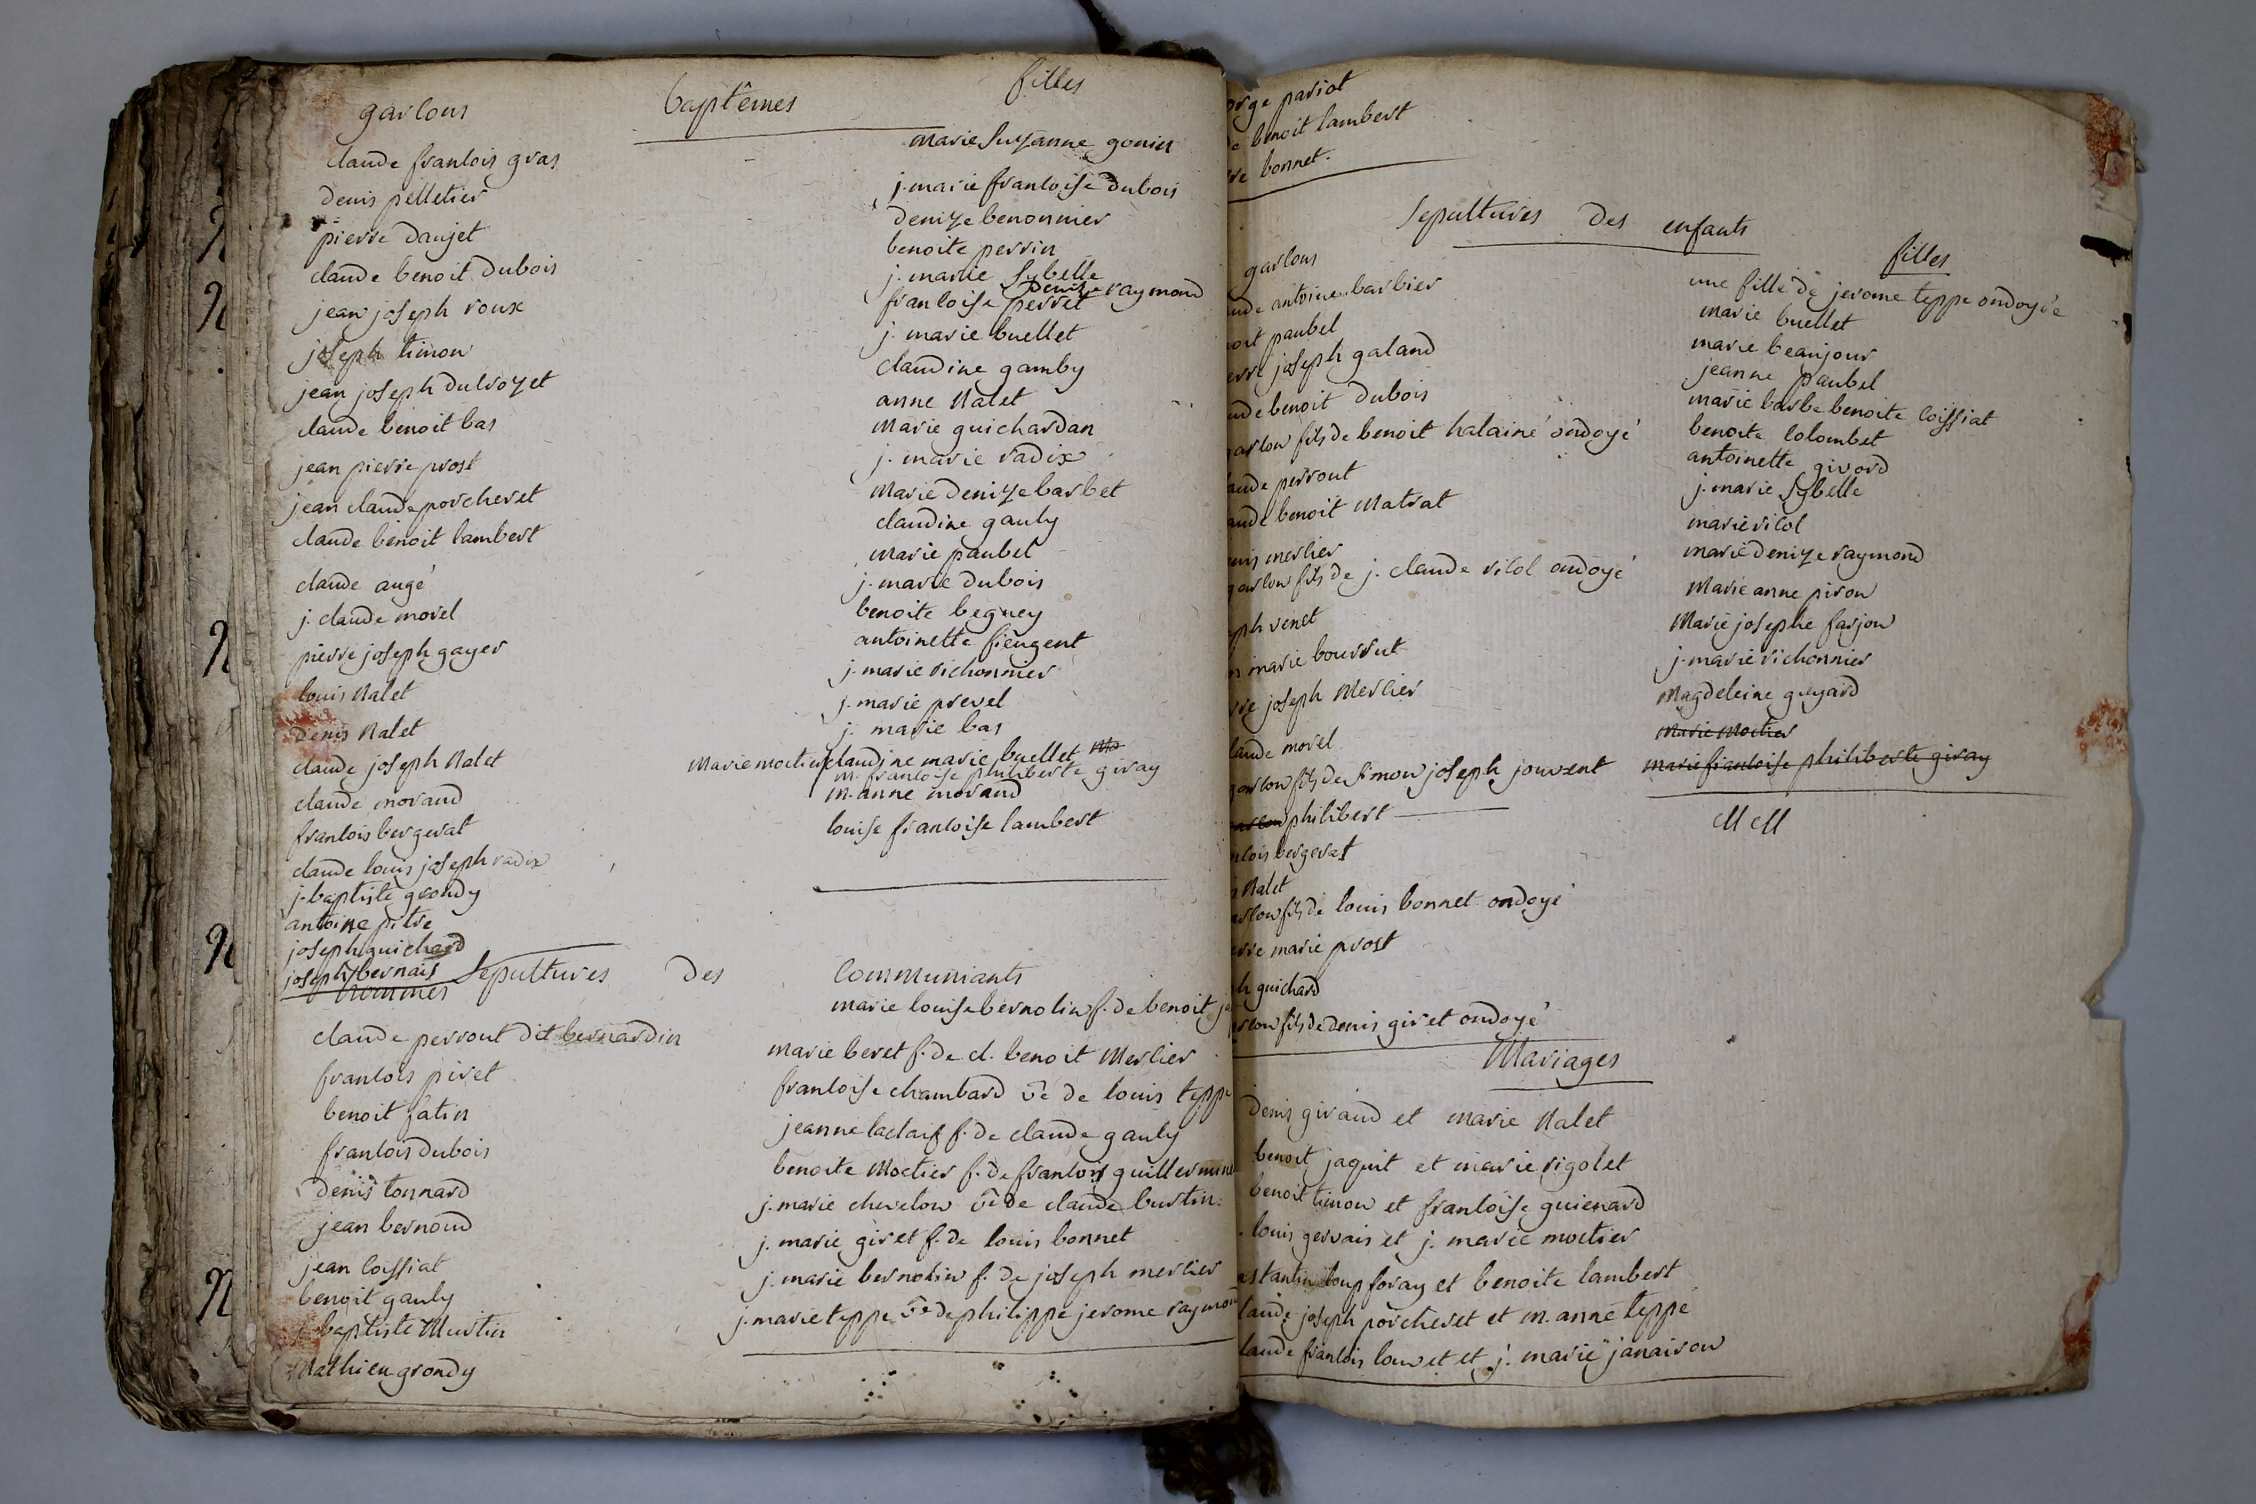 baptêmes
garcons
claude francois gras
denis pelletier
pierre daujet
claude benoit dubois
jean joseph roux
joseph timon
jean joseph ducroyet
claude benoit bas
jean pierre prost
jean claude porcheret
claude benoit lambert
claude augé
j. claude morel
pierre joseph gayer
louis Nalet
denis Nalet
claude joseph Nalet
claude morand
francois bergerat
claude louis joseph radix
j. baptiste grondy
antoine pitre
joseph guichard
joseph bernais
filles
marie suzanne gonin
j. marie francoise dubois
denize benonnier
benoite perrin
j. marie Sybelle
denize raymond
francoise perret
j. marie buellet
claudine gamby
anne Nalet
Marie guichardan
j. marie radix
Marie denize barbet
claudine gauly
Marie paubel
j. marie dubois
benoite beguey
antoinette fiengent
j. marie richonnier
j. marie prevel
j. marie bas
Marie moctier claudine marie buellet
m. francoise philiberte giray
m. anne morand
louise francoise lambert
Sepultures des Communiants
hommes
claude perrout dit bernardin
francois piret
benoit fatin
francois dubois
denis tonnard
jean bernoud
jean coissiat
benoit gauly
j. baptiste Mustin
Mathieu grondy
marie louise bernolin f. de benoit
marie beret f. de cl. benoit Merlier
francoise chambard ve de louis teppe
jeanne laclais f. de claude gauly
benoite Moctier f. de francois
j. marie chevelon ve de claude bustin
j. marie giret f. de louis bonnet
j. marie bernolin f. de joseph merlier
j. marie teppe ve de philippe jerome raymond
orge pariot
de benoit lambert
bonnet.
Sepultures des enfants
garcons
ude antoine barbier
oit paubel
erre joseph galand
ude benoit dubois
garcon fils de benoit halainé ondoyé
aude perrout
aude benoit Matrat
nis merlier
garcon fils de j. claude ricol ondoyé
eph venet
n marie bourrut
rre joseph Merlier
laude morel
garcon fils de simon joseph jouvent
philibert
ncois bergerat
s Nalet
arcon fils de louis bonnet ondoyé
erre marie prost
ph guichard
arcon fils de denis giret ondoyé
filles
une fille de jerome teppe ondoyée
marie buellet
marie beaujour
jeanne paubel
marie barbe benoite Coissiat
benoite Colombet
antoinette givord
j. marie Sybelle
marie ricol
marie denize raymond
Marie anne piron
Marie josephe farjon
j. marie richonnier
Magdeleine guyard
Marie Moctier
marie francoise philiberte giray
Mariages
denis giraud et marie Nalet
benoit jaquit et marie rigolet
benoit timon et francoise guienard
louis gervais et j. marie moctier
nstantin loup foray et benoite lambert
laude joseph porcheret et m. anne teppe
laude francois louvet et j. marie janairon